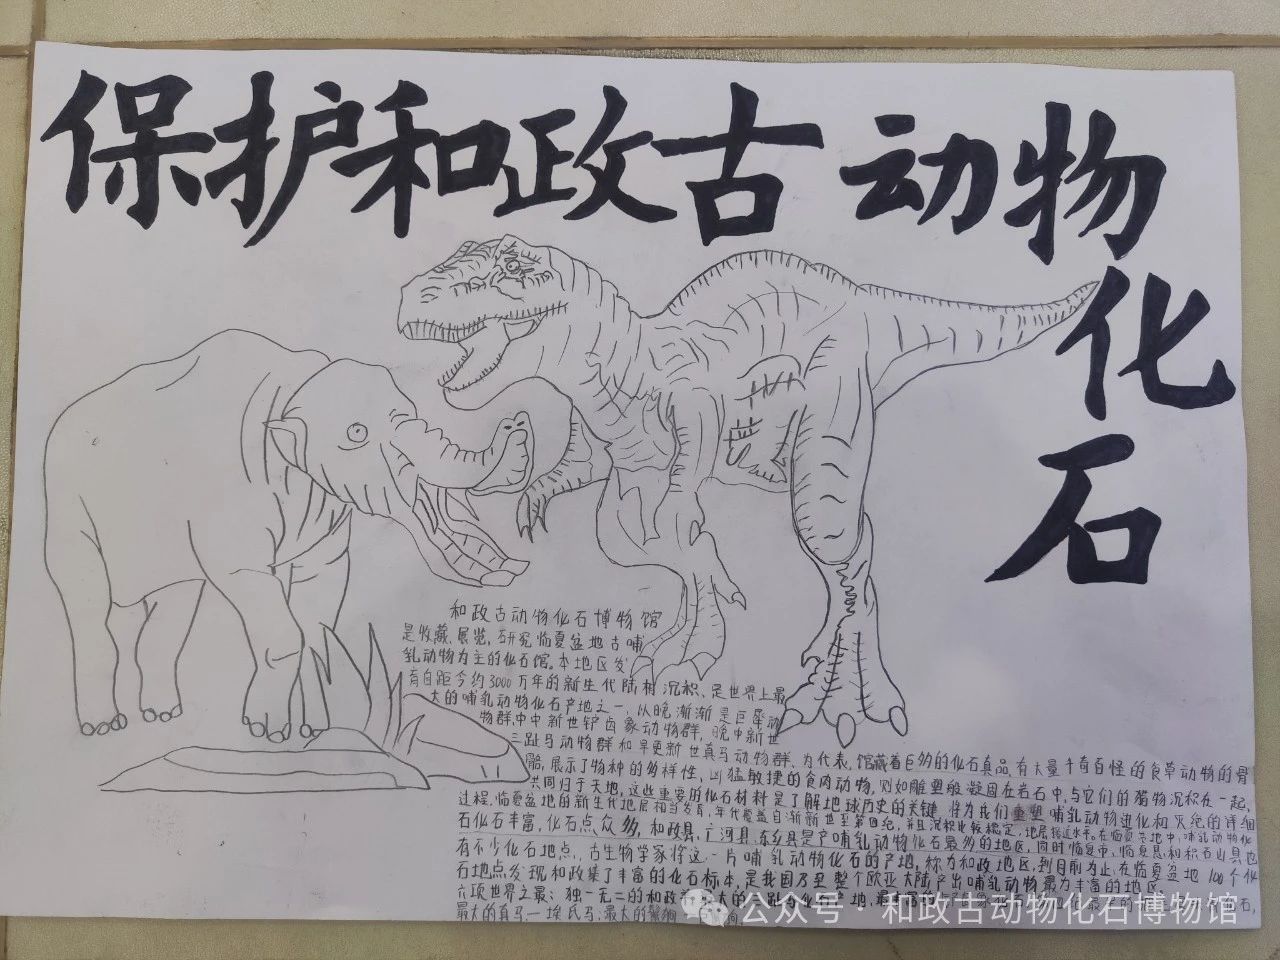 保护和政古动物
化
石
和政古动物化石博物馆
是收藏、展览、研究临夏盆地古哺
乳动物为主的化石馆。本地区发
育自距今约3000万年的新生代陆相沉积、是世界上最
大的哺乳动物化石产地之一，以晚渐渐是巨犀动
物群、中中新世铲齿象动物群、晚中新世
三趾马动物群和早更新世真马动物群、为代表，馆藏着巨多的化石真品，有大量千奇百怪的食草动物的骨
骼，展示了物种的多样性，凶猛敏捷的食肉动物，则如雕塑般凝固在岩石中，与它们的猎物沉积在一起，
共同归于天地，这些重要的化石材料是了解地球历史的关键，将为我们重塑哺乳动物进化和灭绝的详细
过程，临夏盆地的新生代地层相当发育，年代覆盖自渐新世至第四纪，并且沉积比较稳定，地层接近水平。在临夏盆地中，哺乳动物化
石化石丰富，化石点众多，和政县，广河县，东乡县是产哺乳动物化石最多的地区，同时临夏市、临夏县和积石山县也
有不少化石地点，古生物学家将这一片哺乳动物化石的产地，称为和政地区，到目前为止，在临夏盆地100个化
石地点发现和政集了丰富的化石标本，是我国乃至整个欧亚大陆产出哺乳动物最为丰富的地区，
六项世界之最：独一无二的和政羊，最大的三趾马化石产地，最
最大的真马—埃氏马，最大的鬣狗
公众号·和政古动物化石博物馆